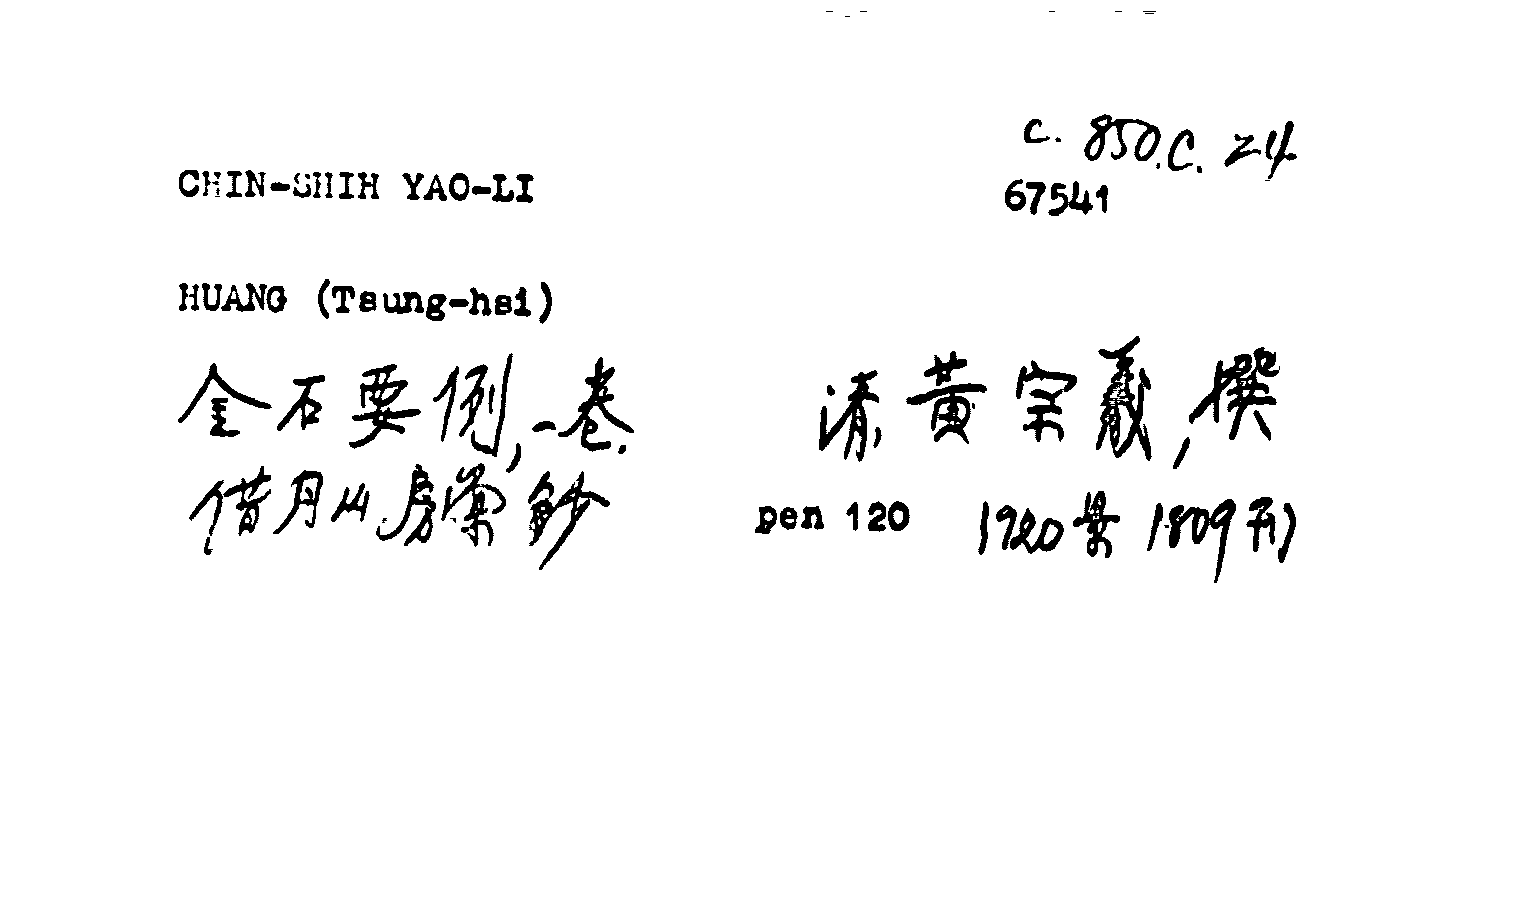 C. 850.C. 24
CHIN-SHIH YAO-LI
67541
HUANG (Tsung-hsi)
金石要例,一卷. 清黃宗羲,撰
借月山房彙鈔 pen 120 1920景 1809刊